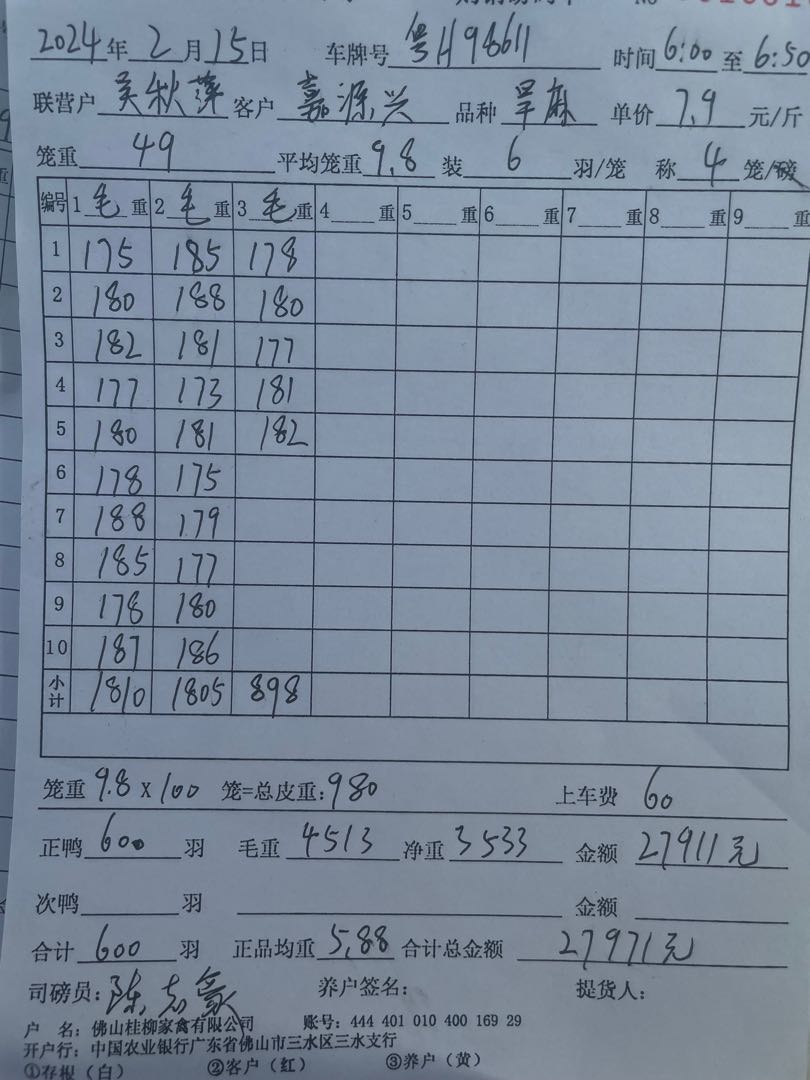 2024年2月15日 车牌号 粤H98611 时间6:00至6:50
联营户 吴秋萍 客户 嘉源兴 品种 旱麻 单价 7.9 元/斤
笼重 49 平均笼重 9.8 装 6 羽/笼 称 4 笼/磅
编号 1毛重 2毛重 3毛重 4____重 5____重 6____重 7____重 8____重 9____重
1 175 185 178
2 180 188 180
3 182 181 177
4 177 173 181
5 180 181 182
6 178 175
7 188 179
8 185 177
9 178 180
10 187 186
小计 1810 1805 898
笼重 9.8 X 100 笼=总皮重:980 上车费 60
正鸭 600 羽 毛重 4513 净重 3533 金额 27911元
次鸭____羽 ____ 金额____
合计 600 羽 正品均重 5.88 合计总金额 27971元
司磅员: 陈志 养户签名: 提货人:
户 名: 佛山桂柳家禽有限公司 账号: 444 401 010 400 169 29
开户行: 中国农业银行广东省佛山市三水区三水支行
①存根(白) ②客户(红) ③养户(黄)